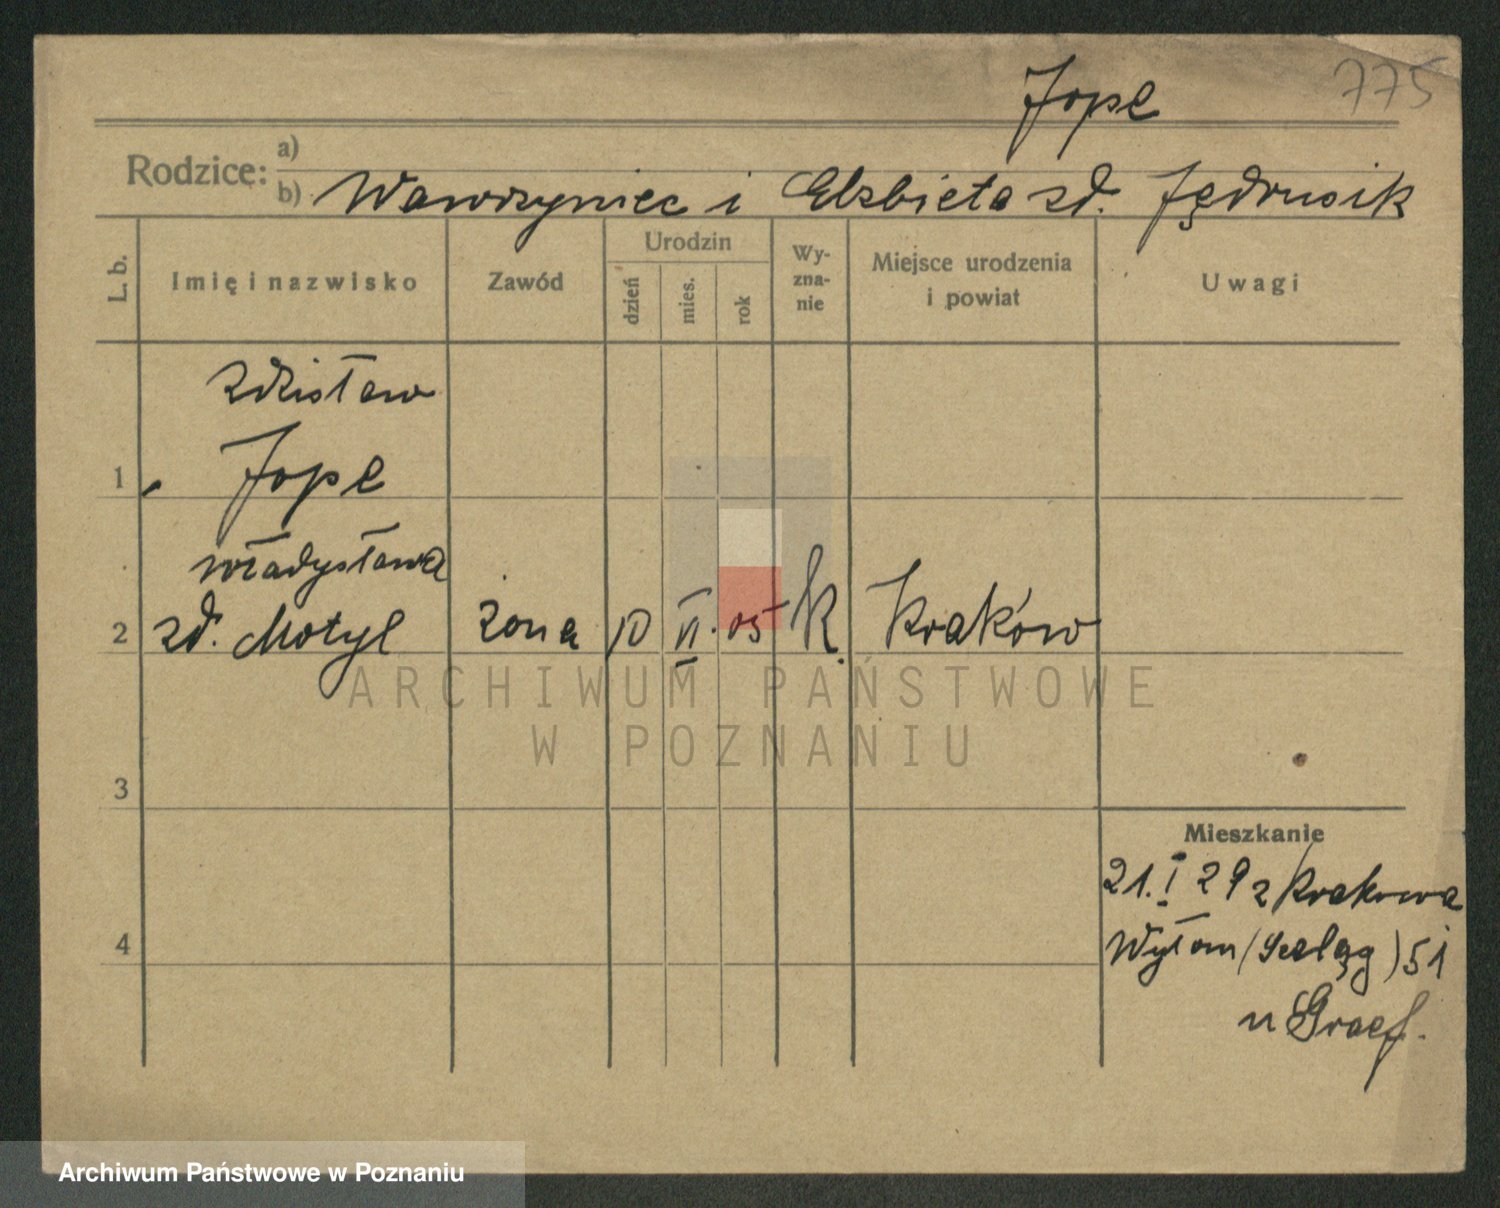 Jope 775
Rodzice: a)
b) Wawrzyniec i Elżbieta zd. Jędrusik
L. b. Imię i nazwisko Zawód Urodzin dzień mies. rok Wy-zna-nie Miejsce urodzenia i powiat Uwagi
Zdzisław
1 Jope
Władysława
2 zd. Motyl żona 10 VI. 05 k. Kraków
ARCHIWUM PAŃSTWOWE
W POZNANIU
3
Mieszkanie
21. I 29 z Krakowa
4 Wyłom (Szeląg) 51
u Graef.
Archiwum Państwowe w Poznaniu